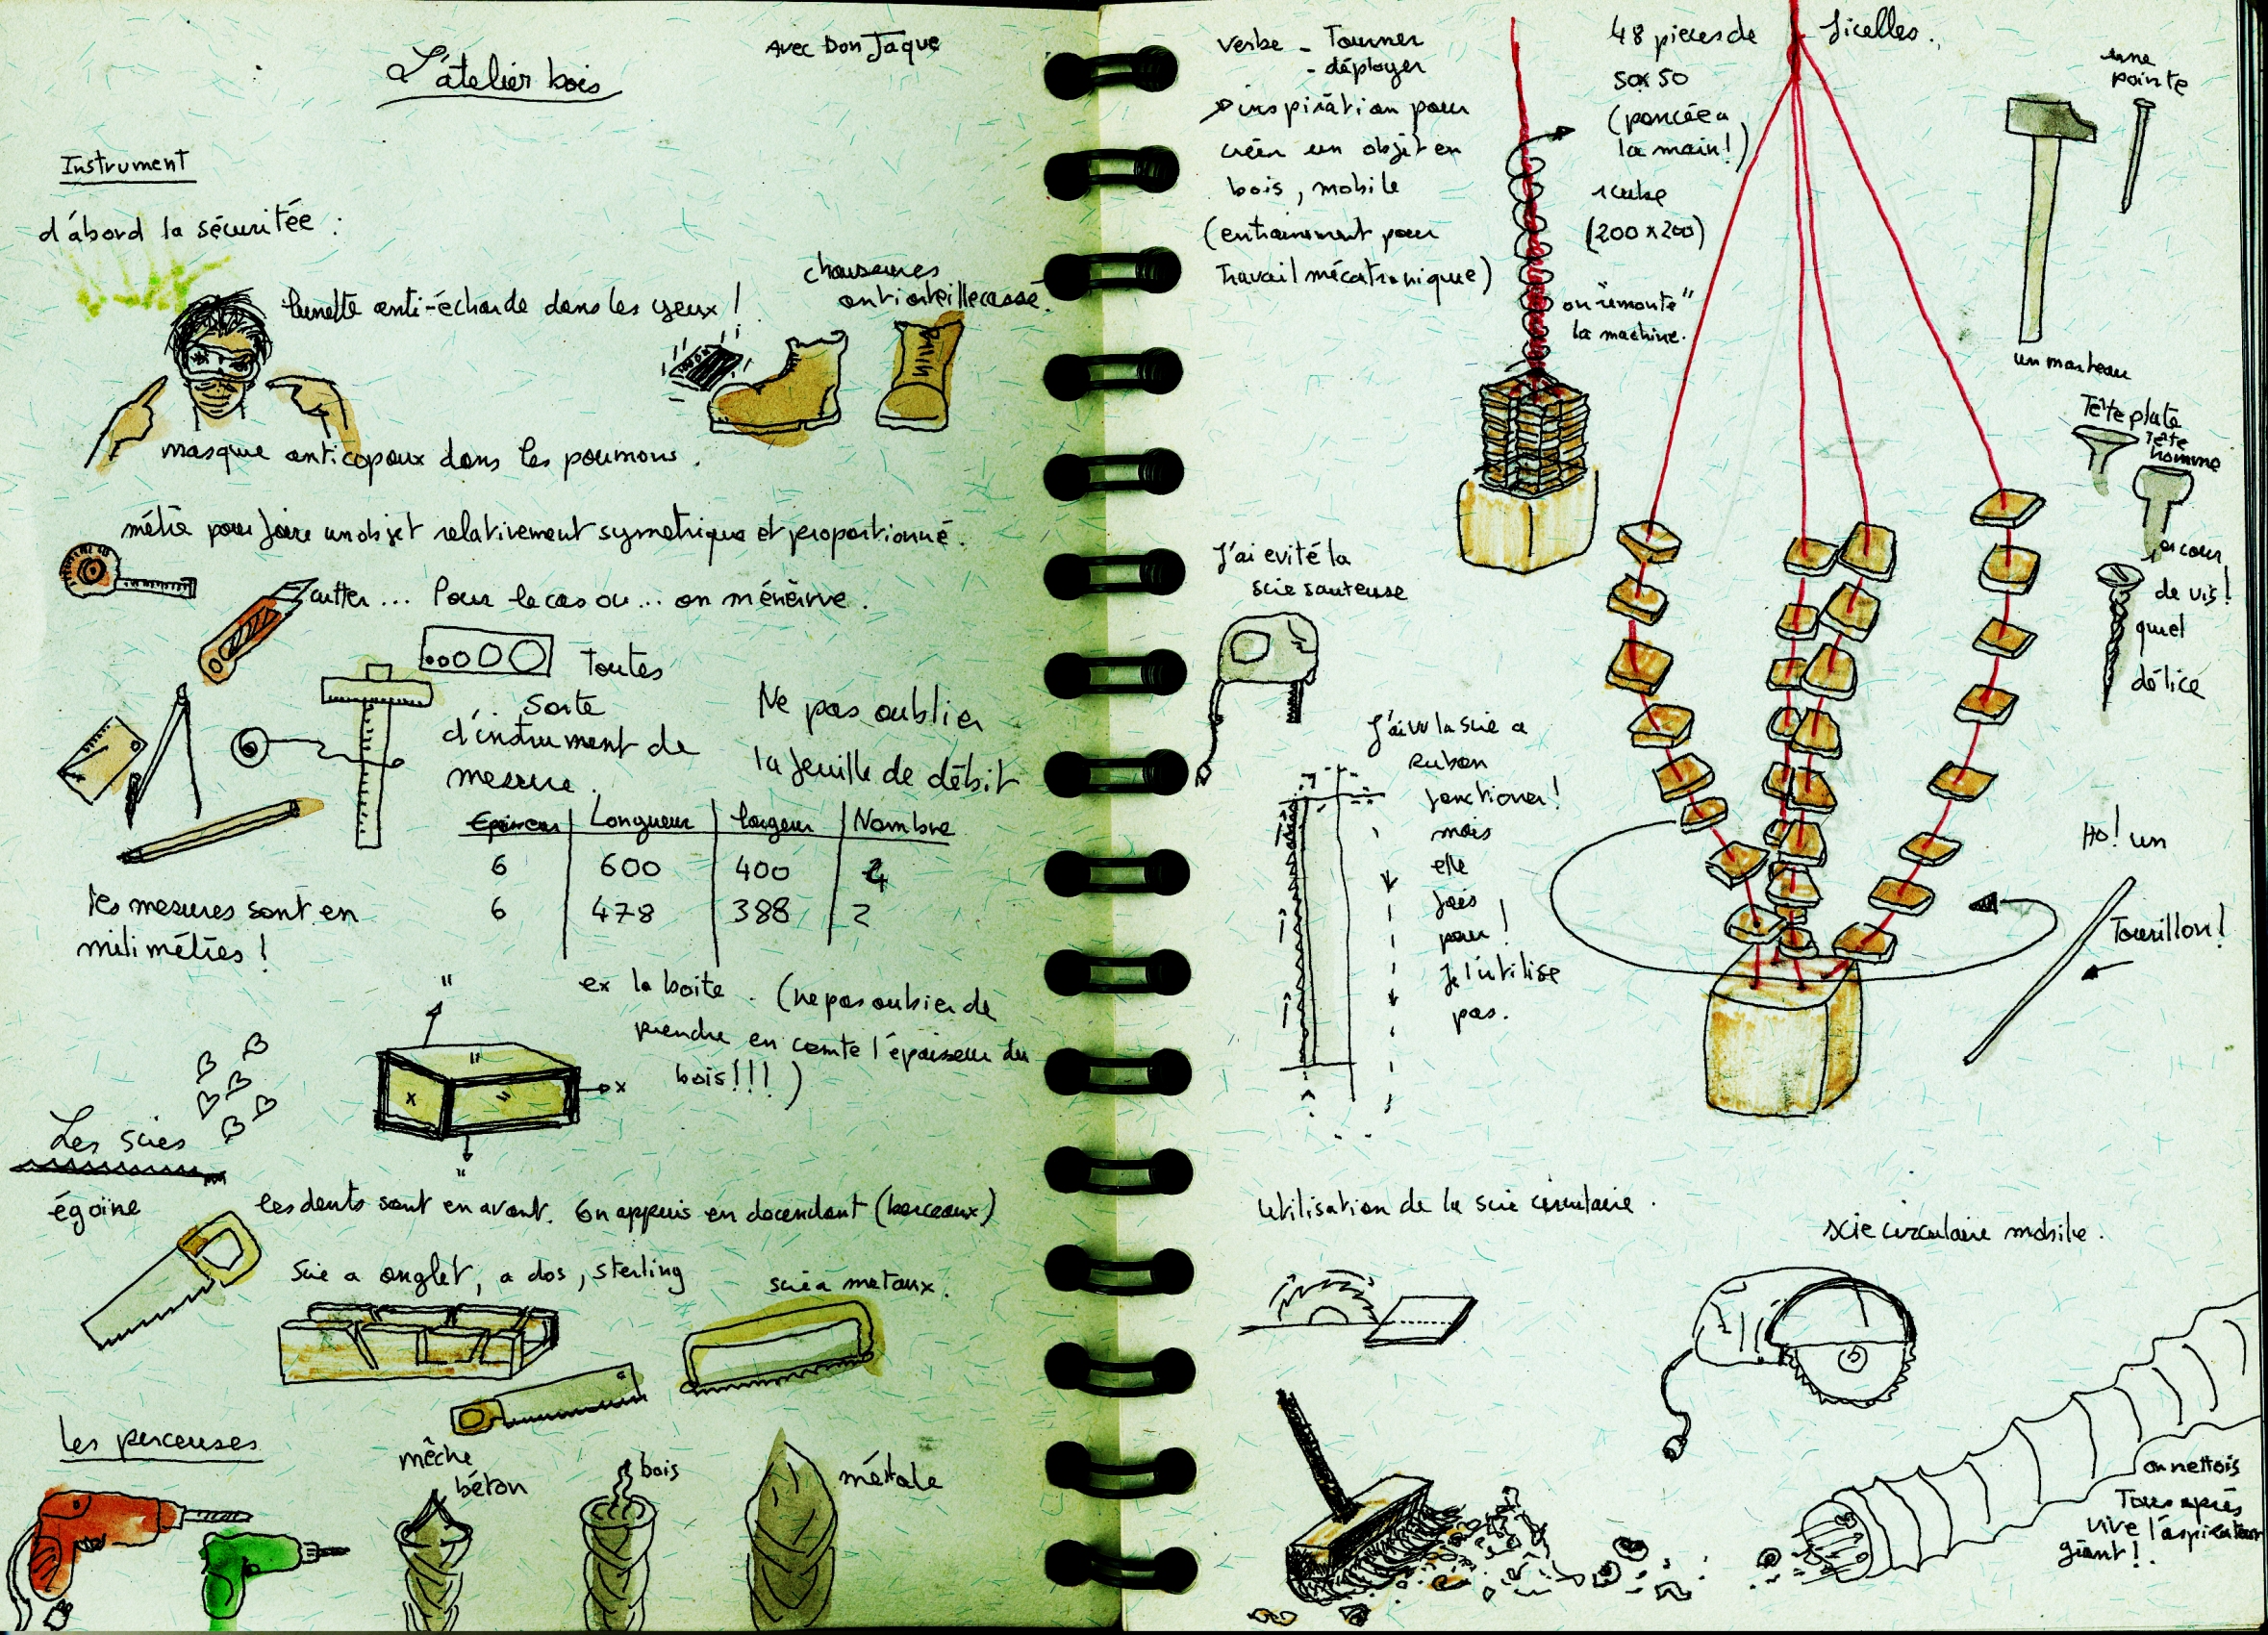 L'atelier bois
Avec Don Jaque
Instrument
d'abord la sécuritée :
lunette anti-écharde dans les yeux !
chaussures
antiorteillecassé.
masque anticopaux dans les poumons.
métre pour faire un objet relativement symetrique et proportionné.
cutter... Pour le cas ou... on ménèirve.
Toutes
sorte
d'instrument de
mesure.
Ne pas oublier
la feuille de débit
Epaisseur Longueur largeur Nombre
6 600 400 4
6 478 388 2
les mesures sont en
mili métres !
ex la boite. (ne pas oublier de
prendre en comte l'épaisseur du
bois!!!)
x
x
"
"
"
"
Les scies
égoïne
les dents sont en avant. On appuis en decendant (berceaux)
scie a onglet, a dos, sterling
scie a metaux.
Les perceuses
mêche
béton
bois
métale
verbe - Tourner
- déployer
inspiration pour
créer un objet en
bois, mobile
(entrainement pour
Travail mécatronique)
48 pieces de
50x50
(poncée a
la main!)
1 cube
(200x200)
ficelles.
on "remonte"
la machine.
une
pointe
un marteau
Tête plate
Tête
homme
de vis!
quel
délice
J'ai evité la
scie sauteuse
J'ai vu la scie a
Ruban
fonctioner!
mais
elle
fais
peur!
Je l'utilise
pas.
Ho! un
Tourillon!
Utilisation de la scie circulaire.
scie circulaire mobile.
on nettois
Tous après
vive l'aspirateur
géant!.